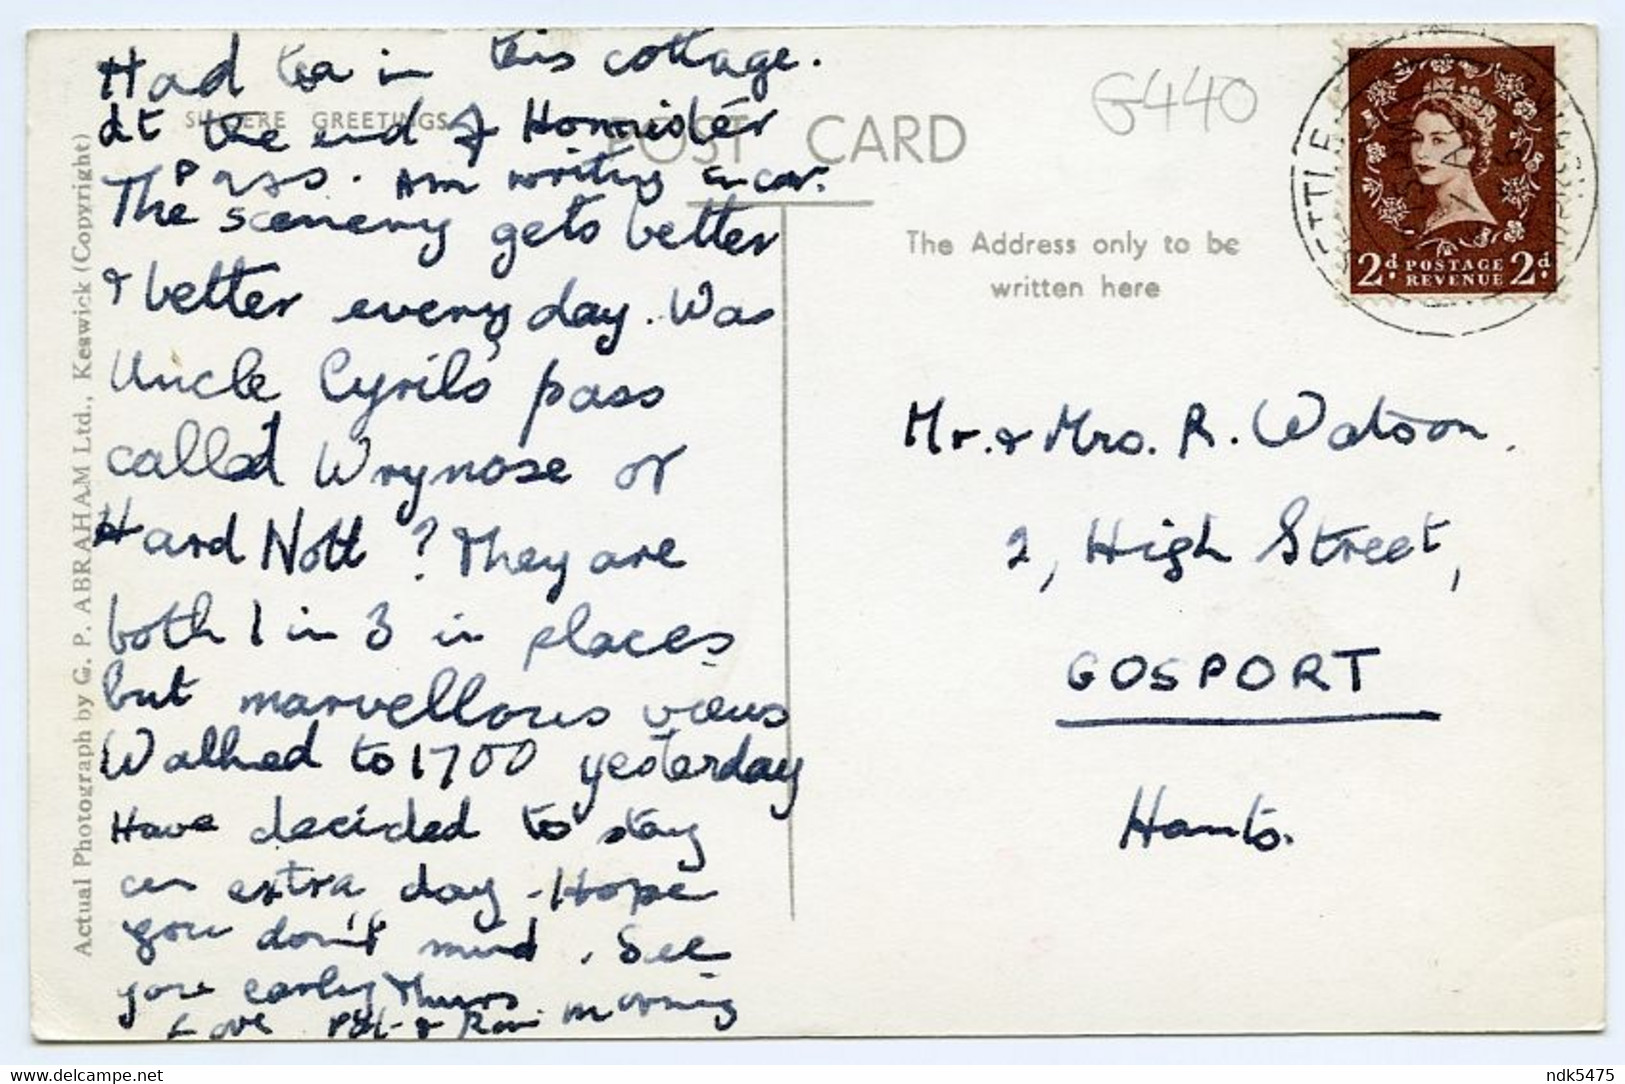 Had tea in this cottage.
At the end of Honnister
Pass. Am writing in car.
The scenery gets better
& better every day. Was
Uncle Cyril's pass
called Wrynose or
Hard Nott? They are
both 1 in 3 in places
but marvellous views
Walked to 1700 yesterday
Have decided to stay
an extra day - Hope
you don't mind. See
you early Thurs morning
Love Pat &
SINCERE GREETINGS
POST CARD
G440
The Address only to be
written here
Mr. & Mrs. R. Watson.
2, High Street,
GOSPORT
Hants.
2d. POSTAGE REVENUE 2d.
Actual Photograph by G. P. ABRAHAM Ltd., Keswick (Copyright)
ndk5475